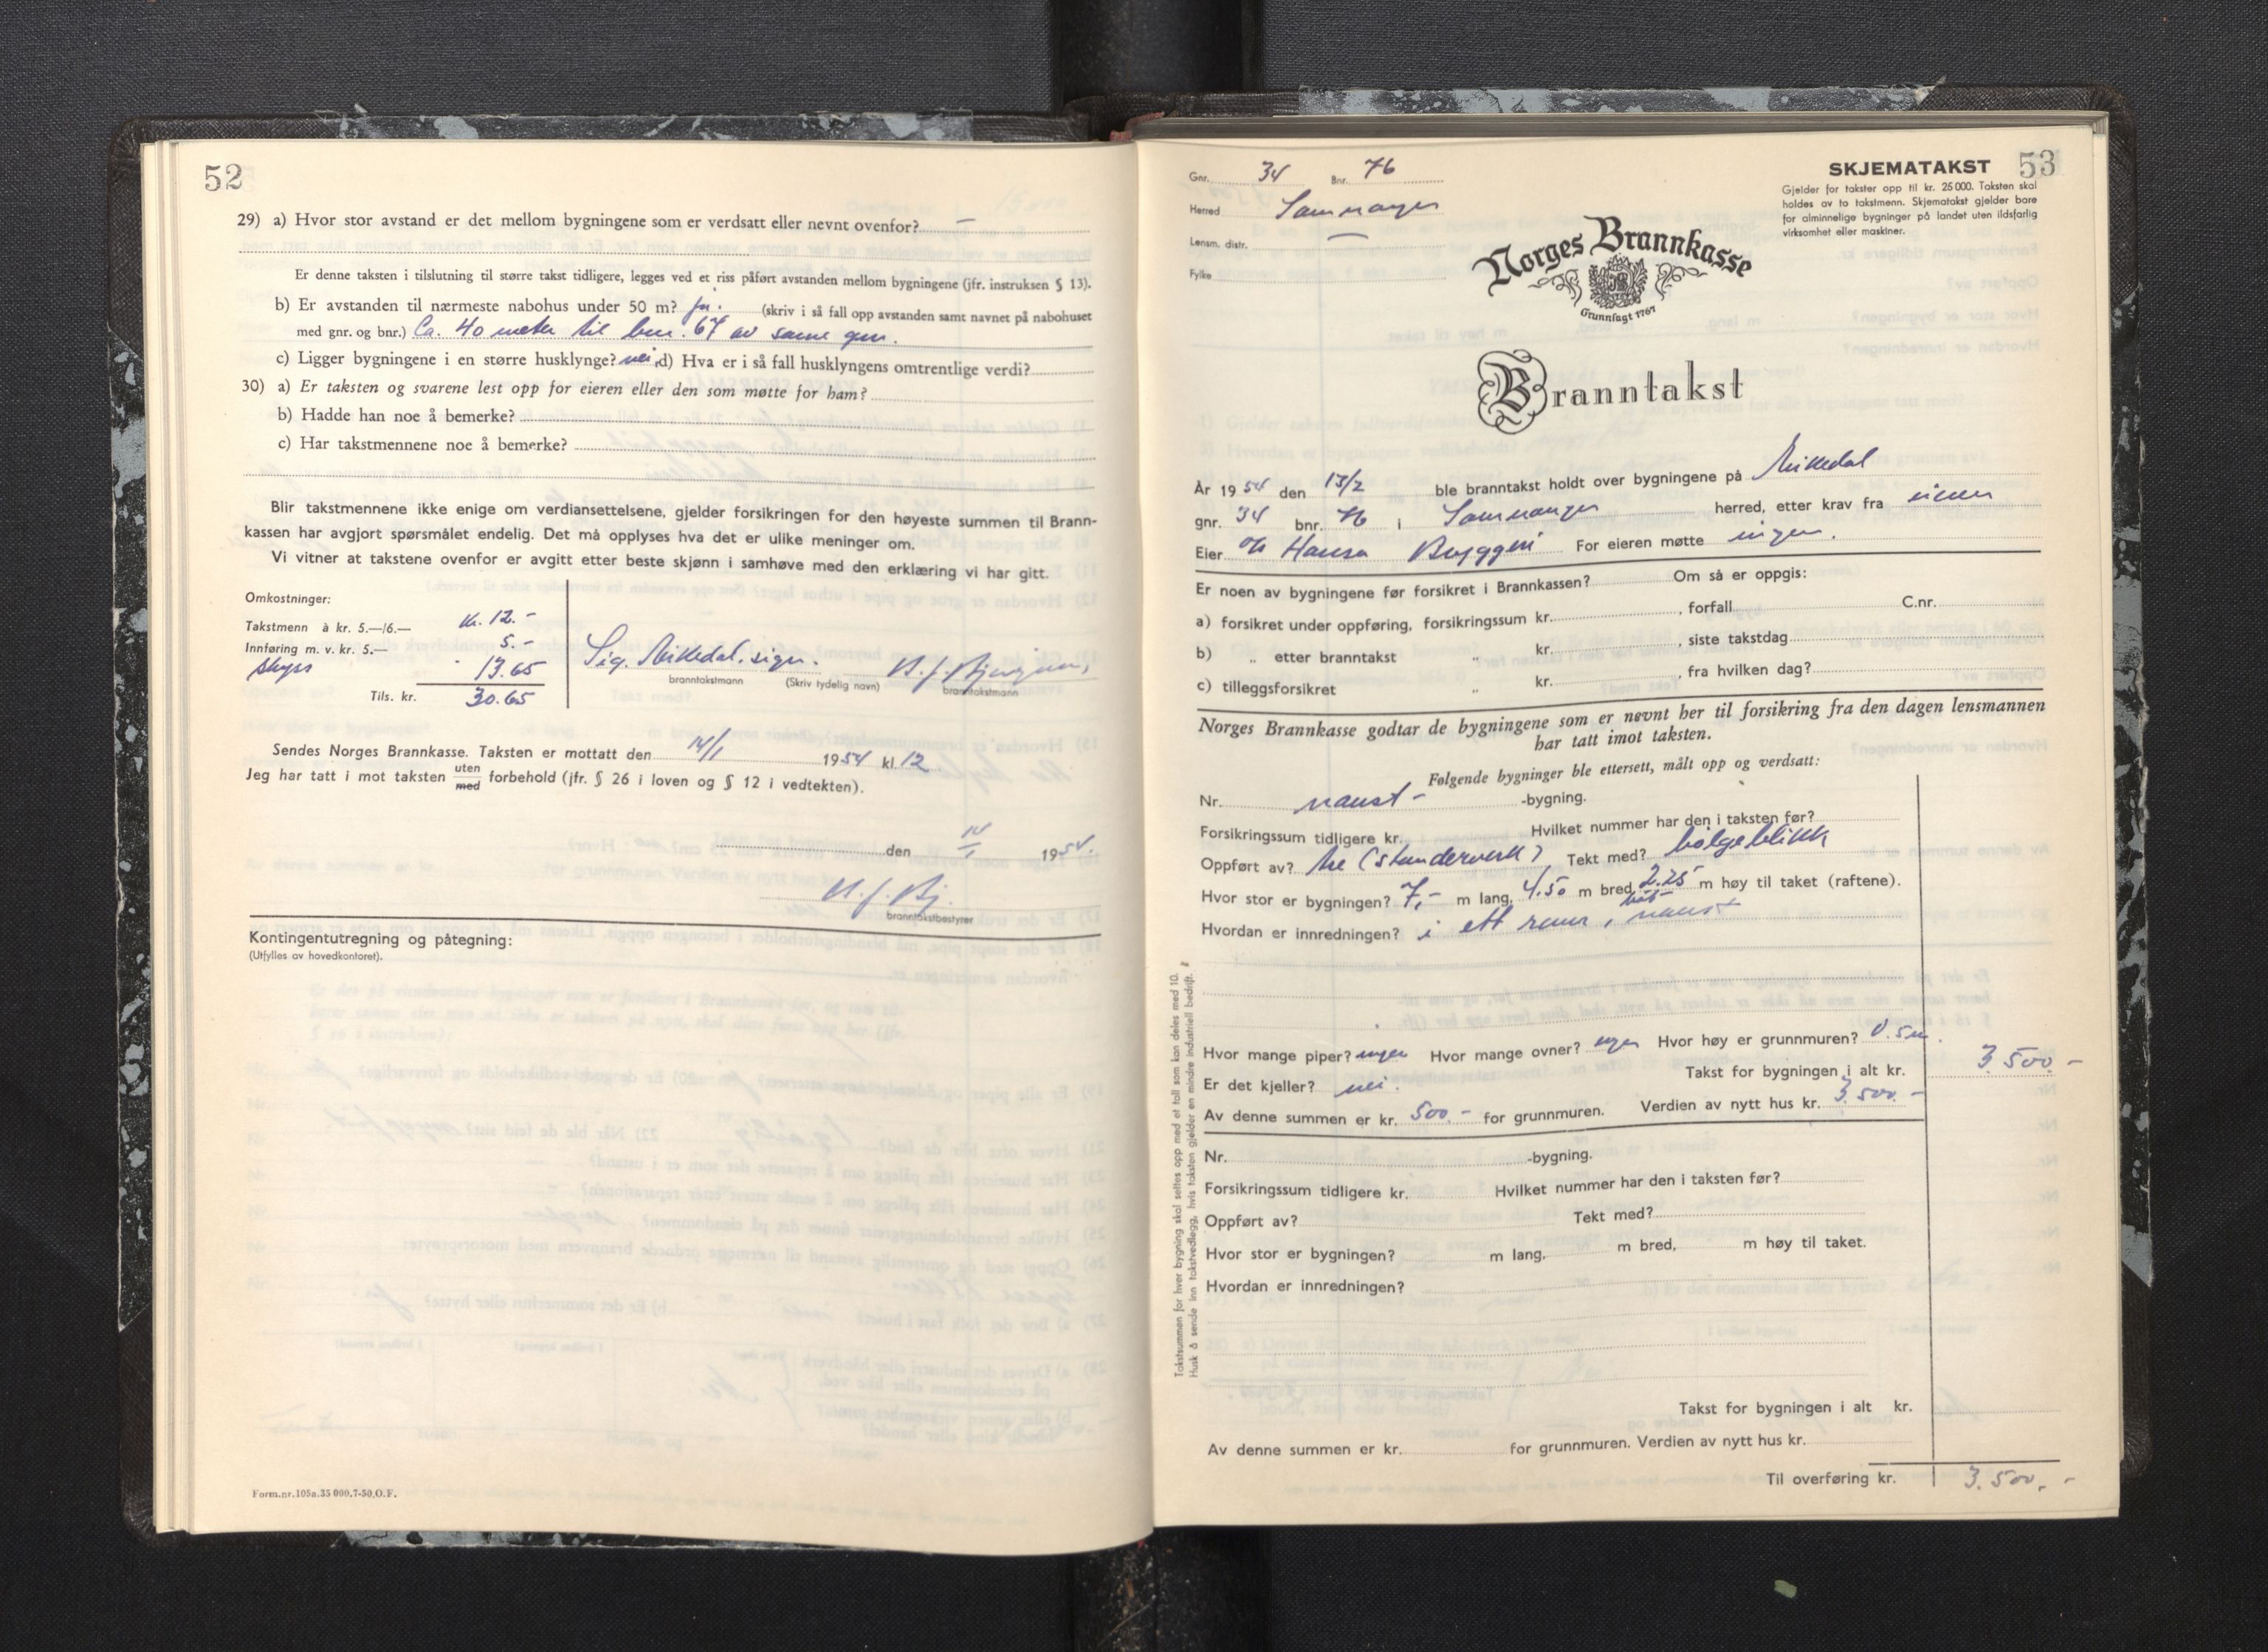 52
29) a) Hvor stor avstand er det mellom bygningene som er verdsatt eller nevnt ovenfor? —
Er denne taksten i tilslutning til større takst tidligere, legges ved et riss påført avstanden mellom bygningene (jfr. instruksen § 13).
b) Er avstanden til nærmeste nabohus under 50 m? ja. (skriv i så fall opp avstanden samt navnet på nabohuset
med gnr. og bnr.) Ca. 40 meter til bnr. 67 av same gnr.
c) Ligger bygningene i en større husklynge? nei, d) Hva er i så fall husklyngens omtrentlige verdi?
30) a) Er taksten og svarene lest opp for eieren eller den som møtte for ham?
b) Hadde han noe å bemerke?
c) Har takstmennene noe å bemerke?
Blir takstmennene ikke enige om verdiansettelsene, gjelder forsikringen for den høyeste summen til Brann-
kassen har avgjort spørsmålet endelig. Det må opplyses hva det er ulike meninger om.
Vi vitner at takstene ovenfor er avgitt etter beste skjønn i samhøve med den erklæring vi har gitt.
Omkostninger:
Takstmenn à kr. 5.—/6.— kr. 12.-
Innføring m. v. kr. 5.— 5.-
skyss - 13.65
Tils. kr. 30.65
Sig. sign.
branntakstmann (Skriv tydelig navn) branntakstmann
Sendes Norges Brannkasse. Taksten er mottatt den 14/1 1954 kl. 12
Jeg har tatt i mot taksten uten med forbehold (jfr. § 26 i loven og § 12 i vedtekten).
den 14/1 1954.
H. J. Bj.
branntakstbestyrer
Kontingentutregning og påtegning:
(Utfylles av hovedkontoret).
Form.nr.105a.35 000.7-50.O.F.
53
SKJEMATAKST
Gjelder for takster opp til kr. 25 000. Taksten skal
holdes av to takstmenn. Skjematakst gjelder bare
for alminnelige bygninger på landet uten ildsfarlig
virksomhet eller maskiner.
Gnr. 34 Bnr. 76
Herred Samnanger
Lensm. distr. —
Fylke
Norges Brannkasse
Grunnlagt 1767
Branntakst
År 1954 den 13/2 ble branntakst holdt over bygningene på
gnr. 34 bnr. 76 i Samnanger herred, etter krav fra eieren
Eier Hansa Bryggeri For eieren møtte ingen.
Er noen av bygningene før forsikret i Brannkassen? Om så er oppgis:
a) forsikret under oppføring, forsikringssum kr. , forfall C.nr.
b) „ etter branntakst „ kr. , siste takstdag
c) tilleggsforsikret „ kr. , fra hvilken dag?
Norges Brannkasse godtar de bygningene som er nevnt her til forsikring fra den dagen lensmannen
har tatt imot taksten.
Følgende bygninger ble ettersett, målt opp og verdsatt:
Nr. naust - -bygning.
Forsikringssum tidligere kr. Hvilket nummer har den i taksten før?
Oppført av? tre (stenderverk) Tekt med? bølgeblikk
Hvor stor er bygningen? 7,- m lang, 4.50 m bred, 2.25 m høy til taket (raftene).
Hvordan er innredningen? i ett rum, båt naust
Hvor mange piper? ingen Hvor mange ovner? ingen Hvor høy er grunnmuren? 0.5 m.
Er det kjeller? nei. Takst for bygningen i alt kr. 3.500.-
Av denne summen er kr. 500.- for grunnmuren. Verdien av nytt hus kr. 3.500.-
Nr. -bygning.
Forsikringssum tidligere kr. Hvilket nummer har den i taksten før?
Oppført av? Tekt med?
Hvor stor er bygningen? m lang, m bred, m høy til taket.
Hvordan er innredningen?
Takst for bygningen i alt kr.
Av denne summen er kr. for grunnmuren. Verdien av nytt hus kr.
Til overføring kr. 3.500.-
Takstsummen for hver bygning skal settes opp med et tall som kan deles med 10.
Husk å sende inn takstvedlegg, hvis taksten gjelder en mindre industriell bedrift.